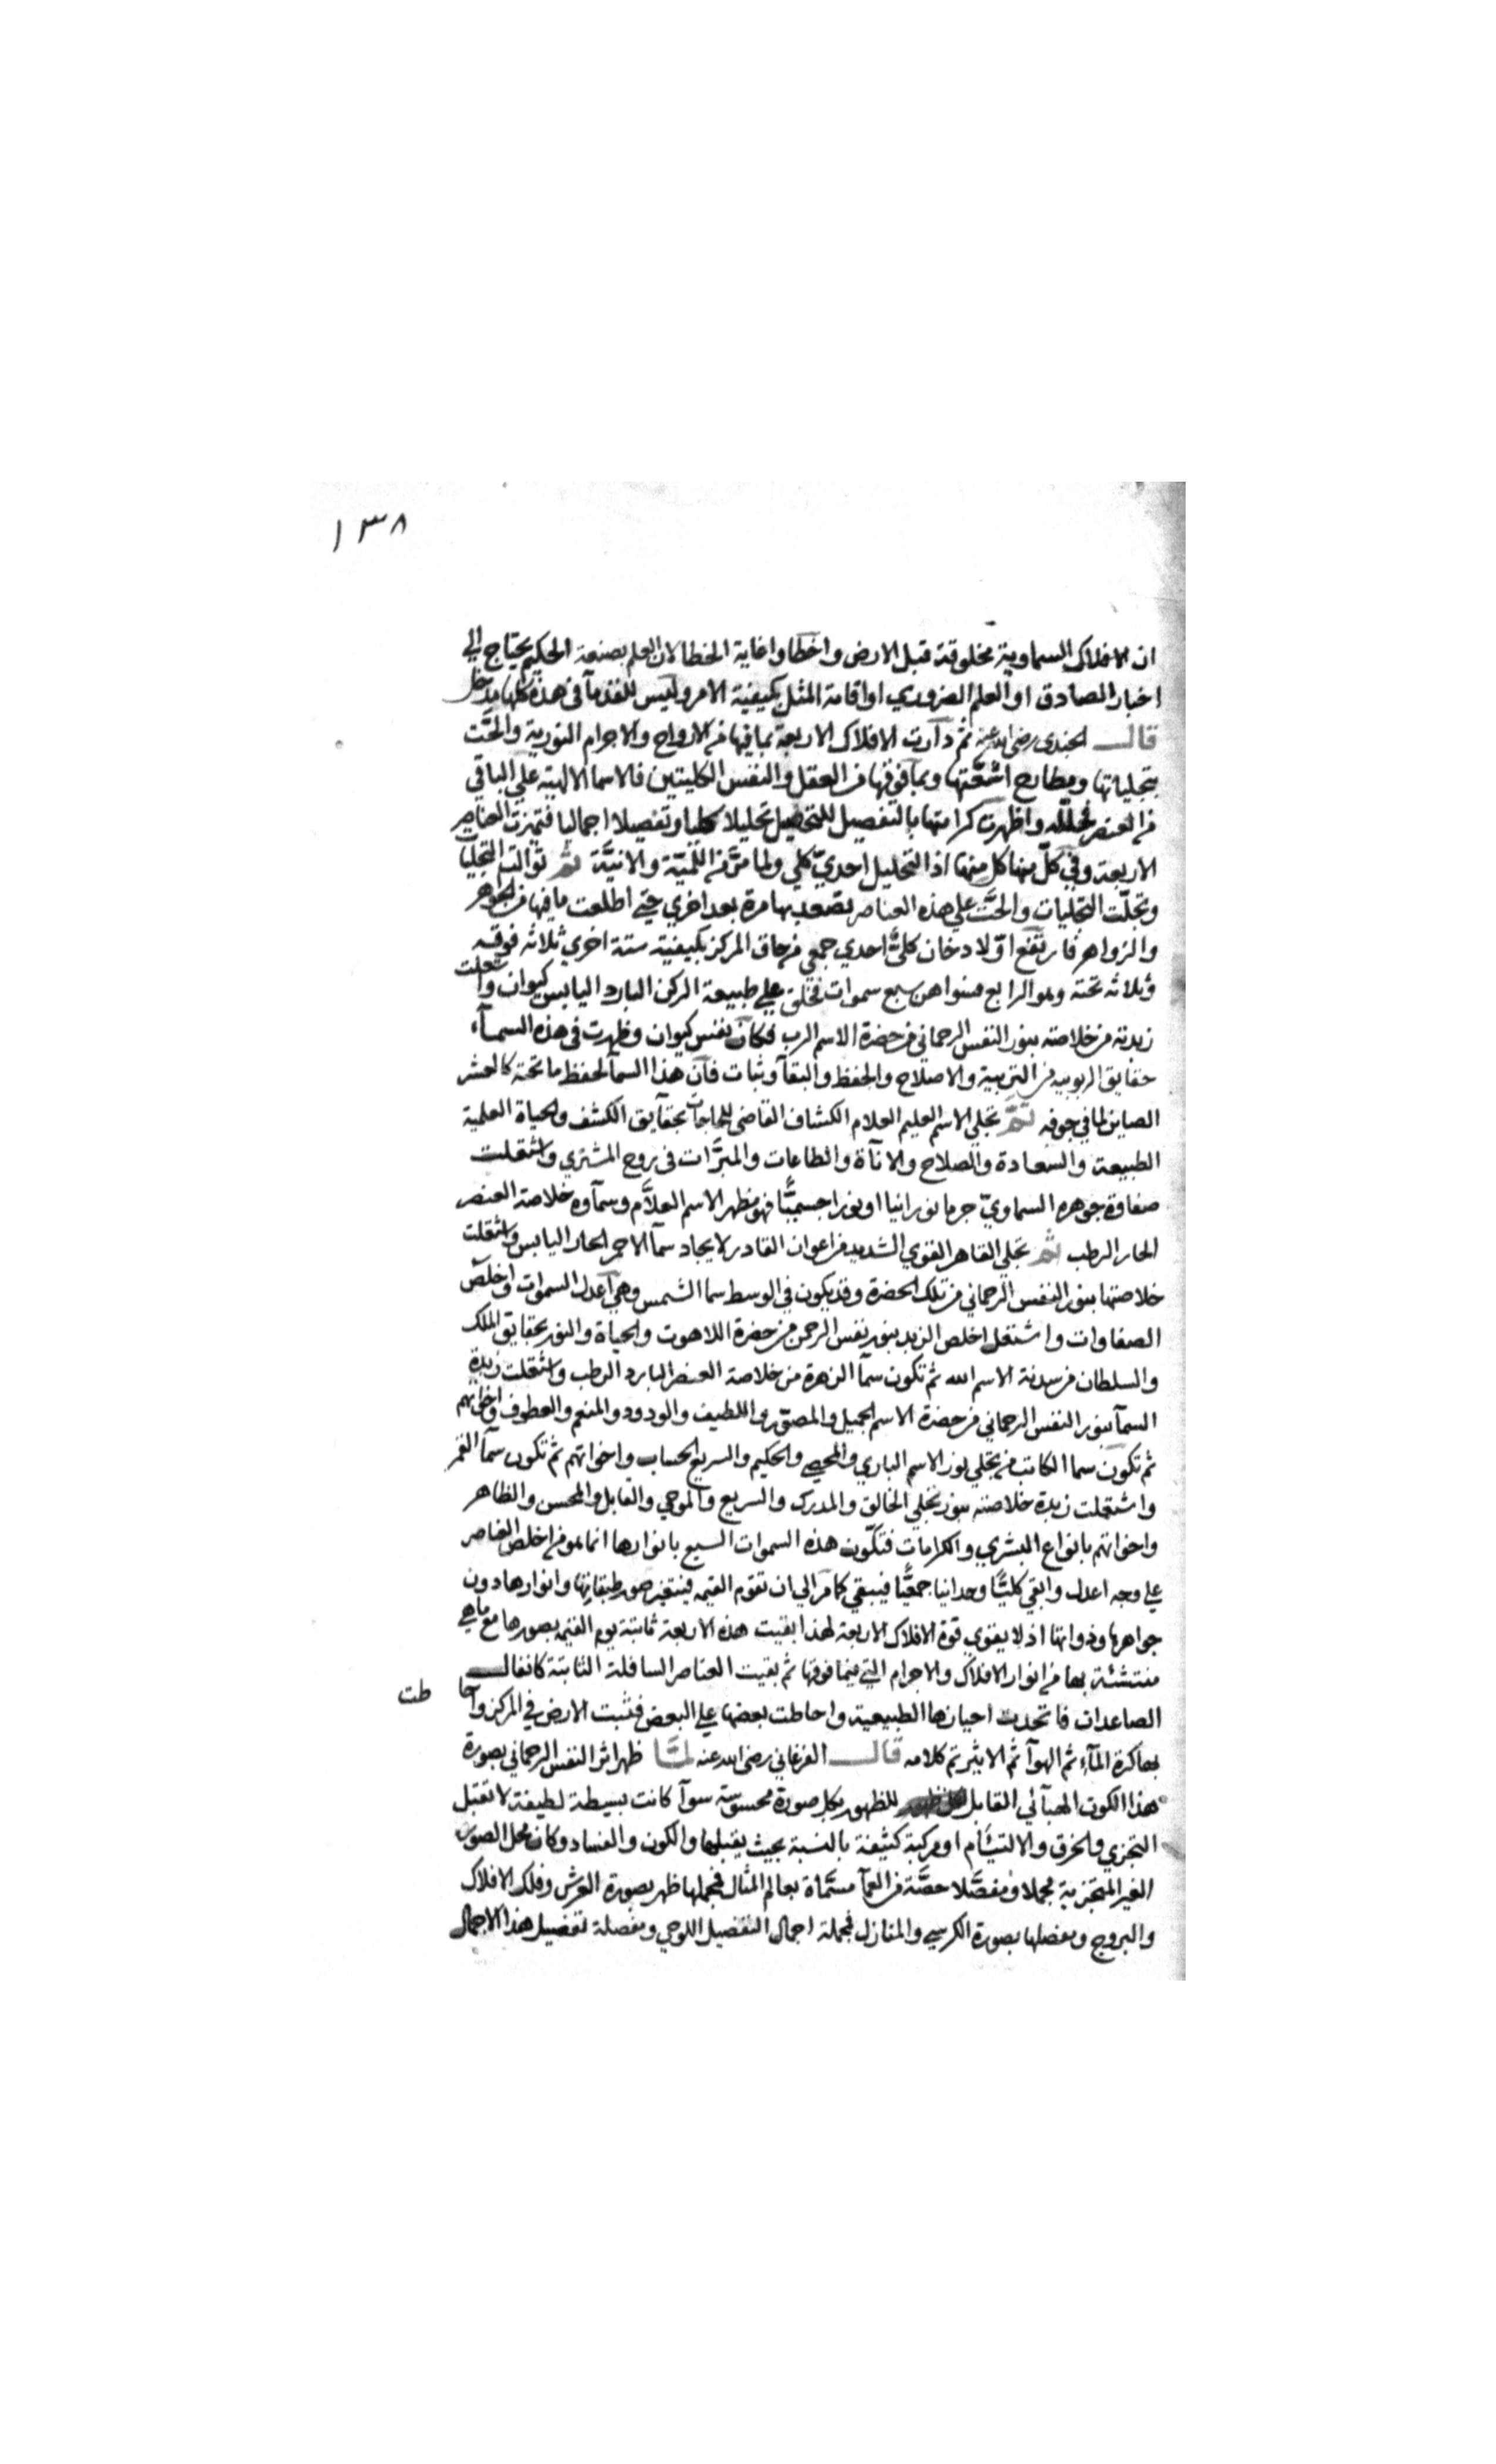 ١٣٨
ان الافلاك السماوية مخلوقة قبل الارض واخطاوا غاية الخطا لان العلم بصنعة الحكيم يحتاج الي
اخبار الصادق او العلم الضروري او اقامة المثل بكيفية الامر وليس للقدمآ في هذه كلها مدخل
قال الجندي رضي الله عنه ثم دارت الافلاك الاربعة بما فيها من الارواح والاجرام النورية والحّت
بتجلياتها ومطارح اشعّتها وبما فوقها من العقل والنفس الكليتين فالاسما الالهية علي الباقي
من العنصر واظهرت كرامتها بالتفصيل تحليلا كليا وتفصيلا اجماليا فتميزت العناصر
الاربعة وفي كلّ منها كل منها اذ التحليل احديّ كلي ولما مرّ من اللّميّة والانيّة ثم توالت التجليات
وتجلّت التجليات والحّت علي هذه العناصر بتصعيدها مرة بعد اخري حتي اطلعت ما فيها من الجواهر
والزواهر فارتفع اوّلا دخان كليّ احدي جمعي من حاق المركز بكيفية ستة اخري ثلاثه فوقه
وثلاثه تحته وهو الرابع فسواهن سبع سموات فخلق علي طبيعة الركن البارد اليابس كيوان واشتعلت
زبدته من خلاصته بنور النفس الرحماني من حضرة الاسم الرب فكان نفس كيوان وظهرت في هذه السمآء
حقايق الربوبيه من التربية والاصلاح والحفظ والبقآ وثبات فان هذا السمآ لحفظ ما تحته كالعشر
الصاين لما في جوفه ثمّ تجلي الاسم العليم العلام الكشاف القاضي للحاجات بحقايق الكشف والحياة العلمية
الطبيعة والسعادة والصلاح والاناة والطاعات والمبرّات في روح المشتري واشتعلت
صفاوة جوهره السماويّ جرما نورانيا او نورا جسميّا فهو مظهر الاسم العلاّم وسمآوه خلاصة العنصر
الحار الرطب ثم تجلي القاهر القوي الشديد من اعوان القادر لايجاد سمآ الاحمر الحار اليابس واشتعلت
خلاصتها بنور النفس الرحماني من تلك الحضرة وقد يكون في الوسط سما الشمس وهي اعدل السموات واخلص
الصفاوات واشتعل اخلص الزبد بنور نفس الرحمن من حضرة اللاهوت والحياة والنور بحقايق الملك
والسلطان من سدنة الاسم الله ثم تكون سمآ الزهرة من خلاصة العنصر البارد الرطب واشتعلت زبدة
السمآ بنور النفس الرحماني من حضرة الاسم الجميل والمصوّر واللطيف والودود والمنعم والعطوف واخواتهم
ثم تكون سما الكاتب من تجلي نور الاسم الباري والمحصي والحكيم والسريع الحساب واخواتهم ثم تكون سمآ القمر
واشتعلت زبدة خلاصته بنور تجلي الخالق والمدرك والسريع والموحي والقابل والمحسن والظاهر
واخواتهم بانواع البشري والكرامات فتكّون هذه السموات السبع بانوارها انما هو من اخلص العناصر
علي وجه اعدل وابقي كليّا وحدانيا جمعيّا فيبقي كما مر الي ان تقوم القيمه فيتغير صور طبقاتها وانوارها دون
جواهرها وذواتها اذ لا يقوي قوة الافلاك الاربعة لهذا بقيت هذه الاربعة ثابتة يوم القيمه بصورها مع ما هي
منتشئة بها من انوار الافلاك والاجرام التي فيما فوقها ثم بقيت العناصر السافلة الثابتة كانفال
الصاعدات فاتحدت احيازها الطبيعية واحاطت بعضها علي البعض فثبت الارض في المركز واحا طت
بها كرة المآء ثم الهوآ ثم الاثير تم كلامه قال الفرغاني رضي الله عنه لمّا ظهر اثر النفس الرحماني بصورة
هذا الكون الهبآئي القابل للظهور بكل صورة محسوسة سوآ كانت بسيطة لطيفة لا تقبل
التجزي والخرق والالتيئام او مركبة كثيفة بالنسبة بحيث يقبلها والكون والفساد وكان محل الصور
الغير المتجزية مجملا ومفصّلا حصّة من العمآ مسمّاة بعالم المثال فمجملها ظهر بصورة العرش وفلك الافلاك
والبروج ومفصلها بصورة الكرسي والمنازل فمجملة اجمال التفصيل اللوحي ومفصلة تفصيل هذا الاجمال